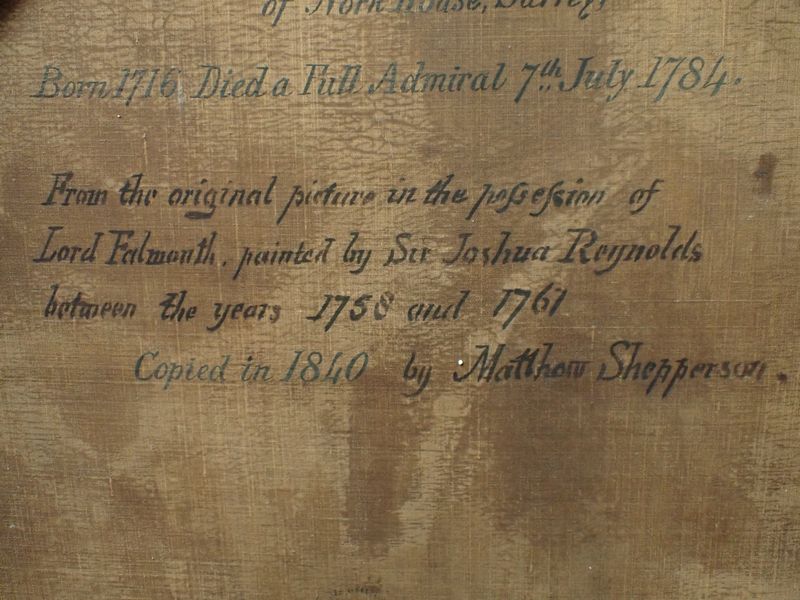 of Nork House, Surrey,
Born 1716, Died a Full Admiral 7th July 1784.
From the original picture in the possession of
Lord Falmouth, painted by Sir Joshua Reynolds
between the years 1758 and 1761
Copied in 1840 by Matthew Shepperson.